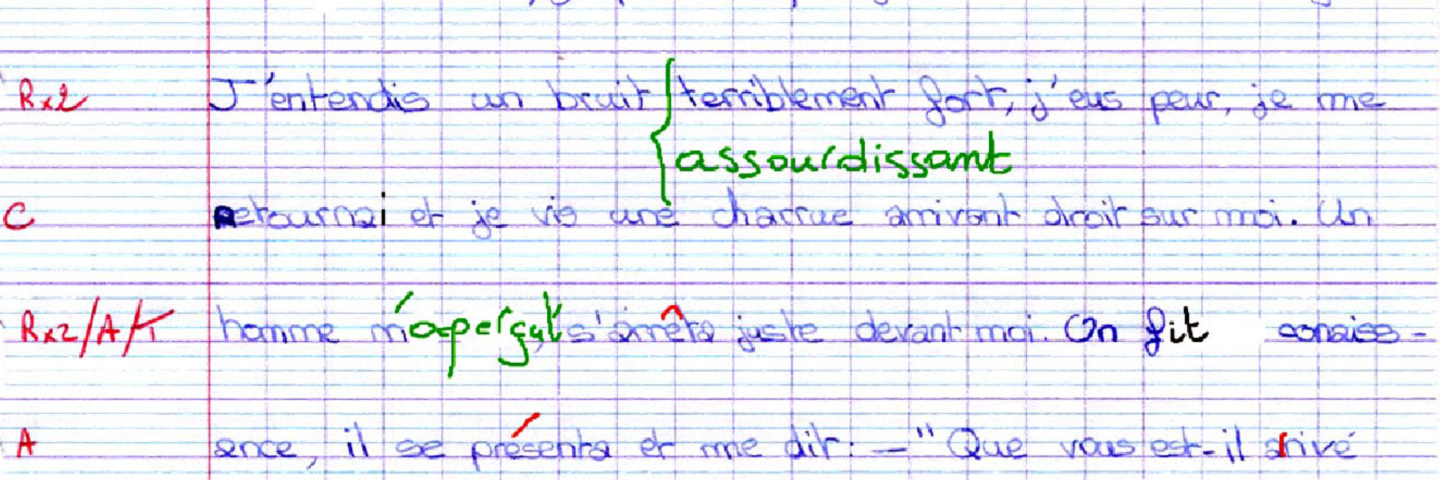 Rx2 J'entendis un bruit { terriblement fort, j'eus peur, je me
assourdissant
C Retournai et je vis une charrue arrivant droit sur moi. Un
Rx2/A/T homme m'aperçut, s'arrêta juste devant moi. On fit conaiss-
A ence, il se présenta et me dit : - " Que vous est-il arivé